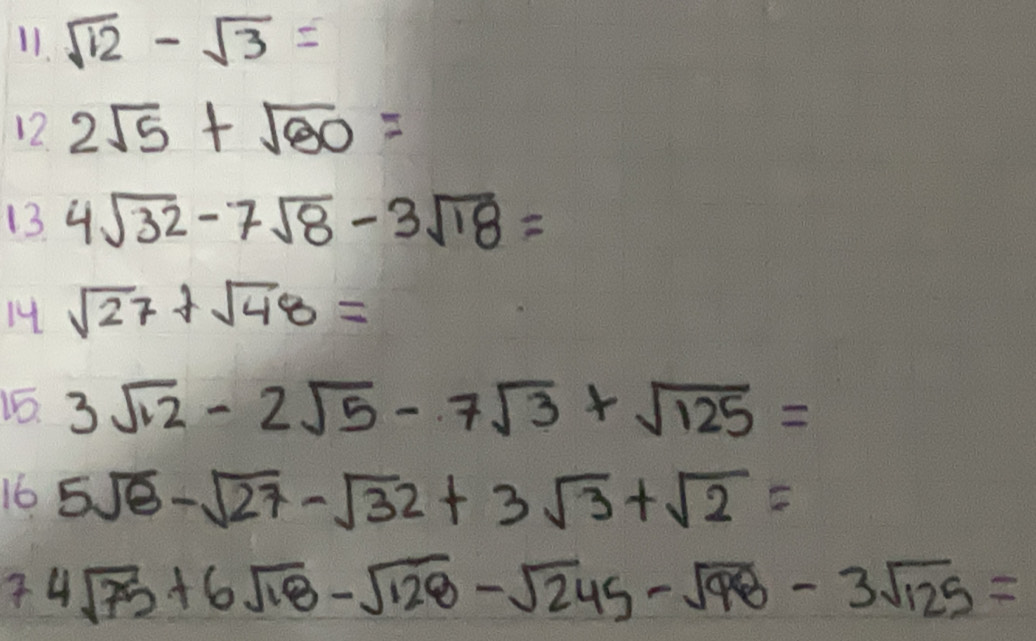 11. √12 - √3 =
12 2√5 + √80 =
13. 4√32 - 7√8 - 3√18 =
14 √27 + √48 =
15. 3√12 - 2√5 - 7√3 + √125 =
16 5√8 - √27 - √32 + 3√3 + √2 =
7 4√75 + 6√18 - √128 - √245 - √98 - 3√125 =